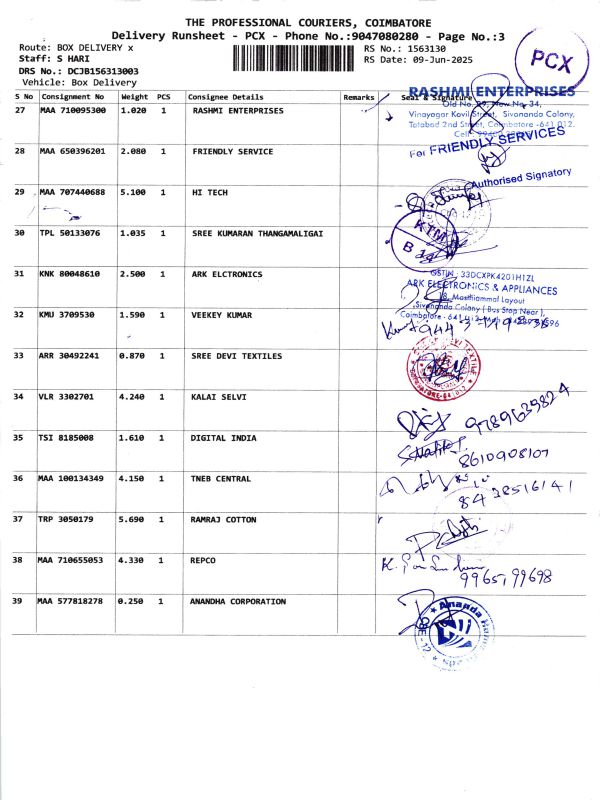 THE PROFESSIONAL COURIERS, COIMBATORE
Delivery Runsheet - PCX - Phone No.:9047080280 - Page No.:3
Route: BOX DELIVERY x RS No.: 1563130
Staff: S HARI RS Date: 09-Jun-2025
DRS No.: DCJB156313003
Vehicle: Box Delivery
PCX
S No Consignment No Weight PCS Consignee Details Remarks Seal & Signature
27 MAA 710095300 1.020 1 RASHMI ENTERPRISES
RASHMI ENTERPRISES
Old No. 39, New No. 34,
Vinayagar Kovil Street, Sivananda Colony,
Tatabad 2nd Street, Coimbatore - 641 012.
28 MAA 650396201 2.080 1 FRIENDLY SERVICE
For FRIENDLY SERVICES
Authorised Signatory
29 MAA 707440688 5.100 1 HI TECH
30 TPL 50133076 1.035 1 SREE KUMARAN THANGAMALIGAI
KTM
31 KNK 80048610 2.500 1 ARK ELCTRONICS
GSTIN : 33DCXPK4201H1ZL
ARK ELECTRONICS & APPLIANCES
18, Masthiammal Layout
Sivananda Colony ( Bus Stop Near ),
32 KMU 3709530 1.590 1 VEEKEY KUMAR
33 ARR 30492241 0.870 1 SREE DEVI TEXTILES
34 VLR 3302701 4.240 1 KALAI SELVI
9789639824
35 TSI 8185008 1.610 1 DIGITAL INDIA
8610908107
36 MAA 100134349 4.150 1 TNEB CENTRAL
37 TRP 3050179 5.690 1 RAMRAJ COTTON
38 MAA 710655053 4.330 1 REPCO
9965799698
39 MAA 577818278 0.250 1 ANANDHA CORPORATION